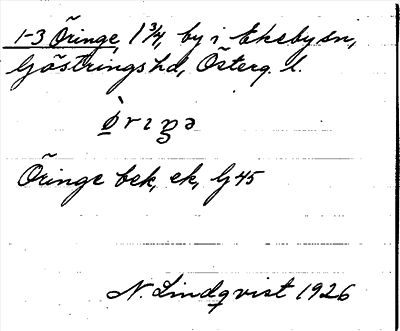 1-3 Öringe, 1 3/4, by i Ekeby sn,
Göstrings hd, Österg. l.
Öringe bek, ek, G 45
N. Lindqvist 1926